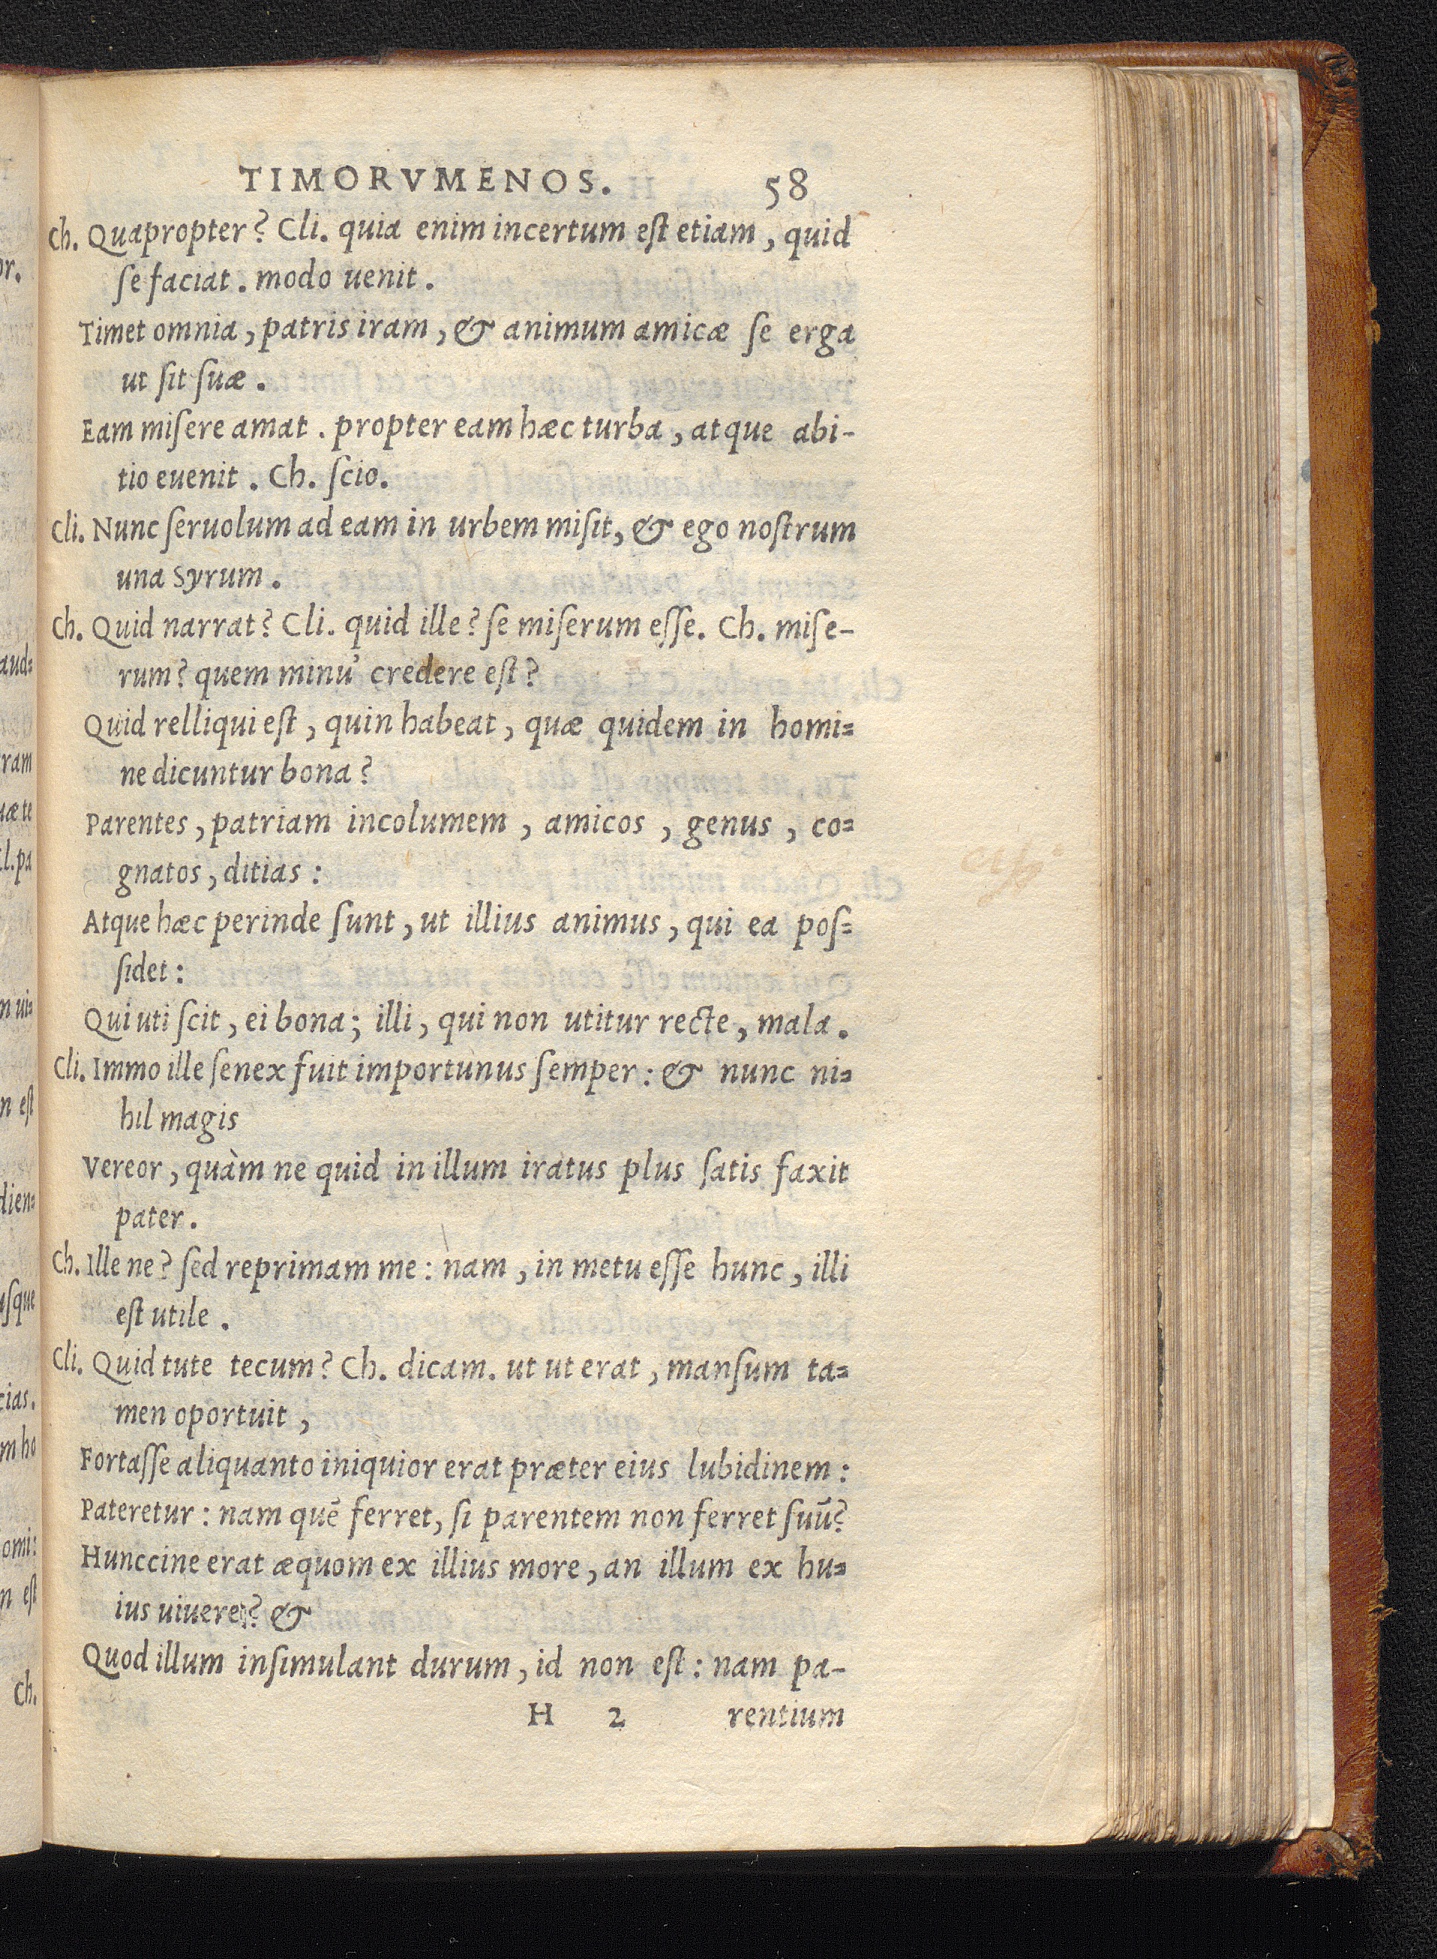 TIMORVMENOS. 58
Ch. Quapropter? Cli. quia enim incertum eſt etiam, quid
ſe faciat. modo uenit.
Timet omnia, patris iram, & animum amicæ ſe erga
ut ſit ſuæ.
Eam miſere amat. propter eam hæc turba, atque abi-
tio euenit. Ch. ſcio.
Cli. Nunc ſeruolum ad eam in urbem miſit, & ego noſtrum
una Syrum.
Ch. Quid narrat? Cli. quid ille? ſe miſerum eſſe. Ch. miſe-
rum? quem minu' credere eſt?
Quid relliqui eſt, quin habeat, quæ quidem in homi=
ne dicuntur bona?
Parentes, patriam incolumem, amicos, genus, co=
gnatos, ditias:
Atque hæc perinde ſunt, ut illius animus, qui ea poſ=
ſidet:
Qui uti ſcit, ei bona; illi, qui non utitur recte, mala.
Cli. Immo ille ſenex fuit importunus ſemper: & nunc ni=
hil magis
Vereor, quàm ne quid in illum iratus plus ſatis faxit
pater.
Ch. Ille ne? ſed reprimam me: nam, in metu eſſe hunc, illi
eſt utile.
Cli. Quid tute tecum? Ch. dicam. ut ut erat, manſum ta=
men oportuit,
Fortaſſe aliquanto iniquior erat præter eius lubidinem:
Pateretur: nam quē ferret, ſi parentem non ferret ſuū?
Hunccine erat æquom ex illius more, an illum ex hu=
ius uiuere? &
Quod illum inſimulant durum, id non eſt: nam pa-
H 2 rentium